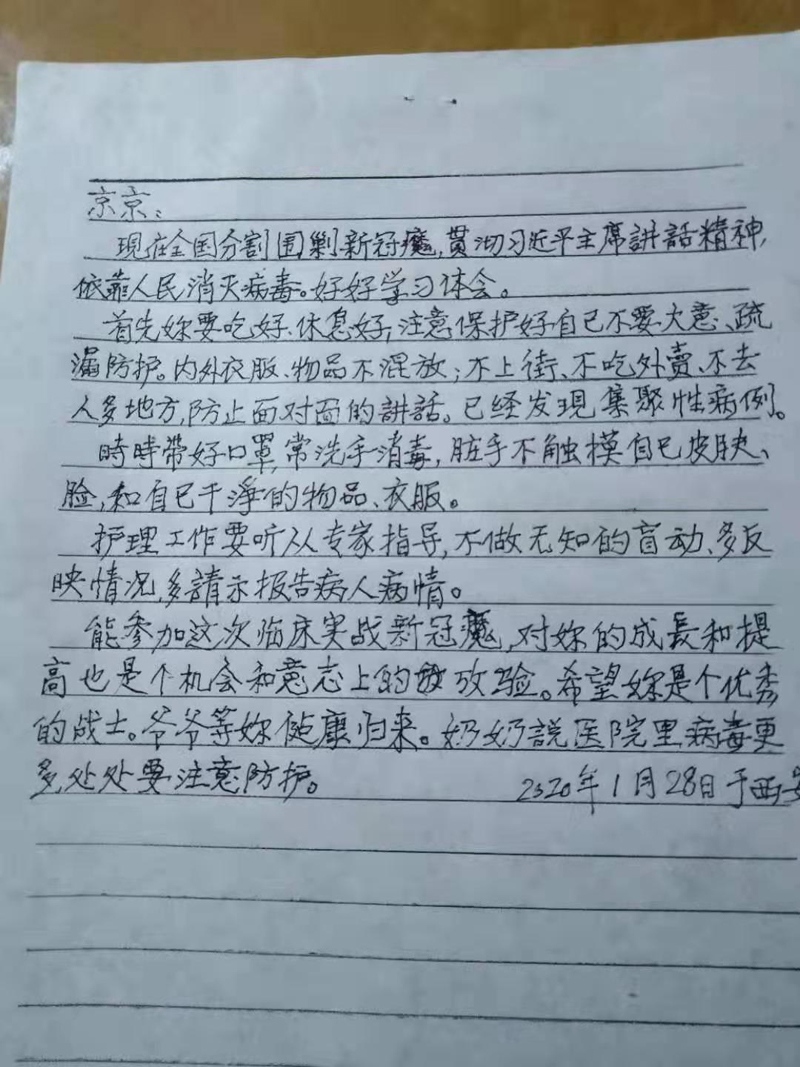 京京：
現在全国分割围剿新冠魔，贯彻习近平主席讲话精神，
依靠人民消灭病毒。好好学习体会。
首先妳要吃好、休息好，注意保护好自己不要大意、疏
漏防护。内外衣服、物品不混放；不上街、不吃外賣、不去
人多地方，防止面对面的讲話。已经发現集聚性病例。
時時带好口罩，常洗手消毒，脏手不触模自己皮肤、
脸，和自已干淨的物品、衣服。
护理工作要听从专家指导，不做无知的盲动、多反
映情况，多請示报告病人病情。
能参加这次临床实战新冠魔，对妳的成長和提
高也是个机会和意志上的攷验。希望妳是个优秀
的战士。爷爷等妳健康归来。奶奶説医院里病毒更
多，处处要注意防护。 2020年1月28日于西安